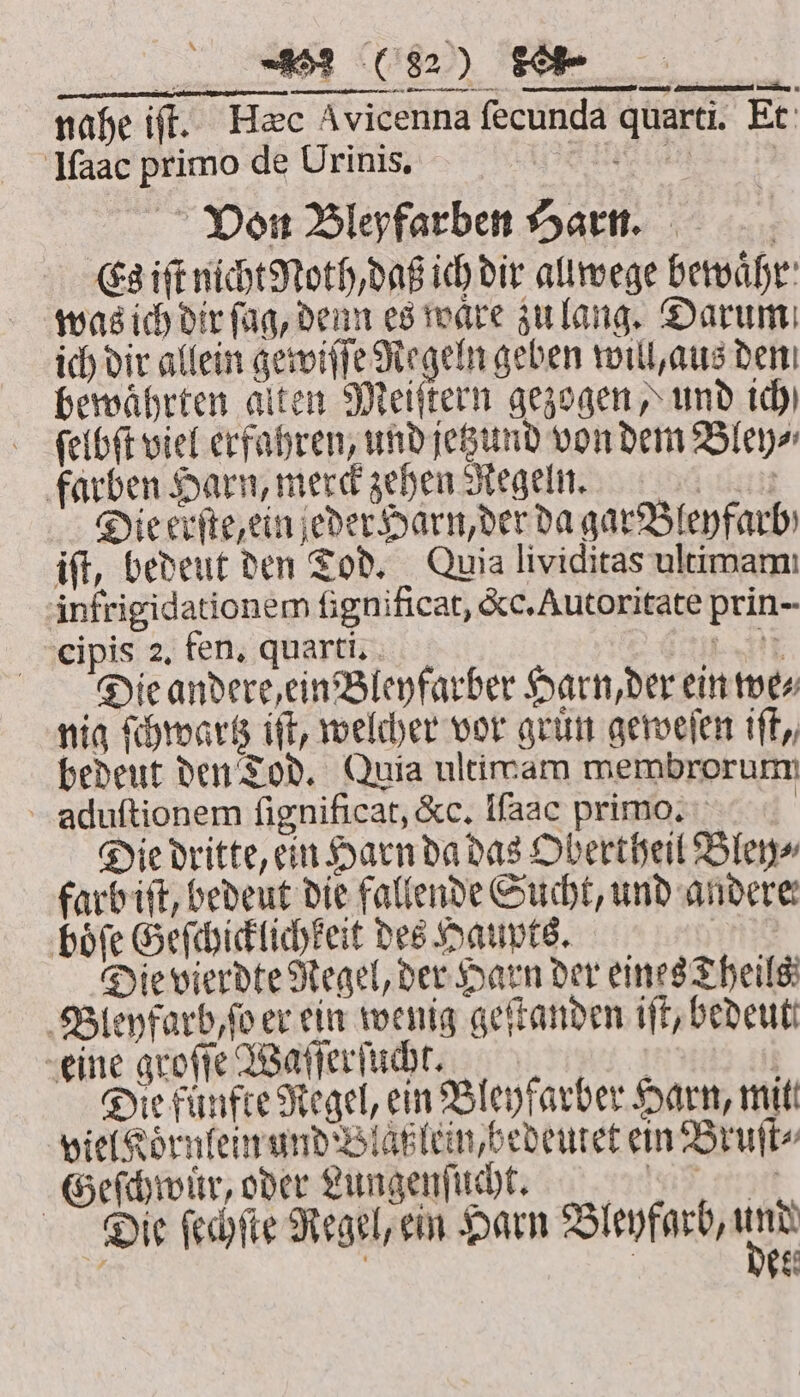 ( 82 )
nahe iſt. Hæc Avicenna ſecunda quarti. Et
Iſaac primo de Urinis.
Von Bleyfarben Harn.
Es iſt nicht Noth, daß ich dir allwege bewaͤhr
was ich dir ſag, denn es waͤre zu lang. Darum
ich dir allein gewiſſe Regeln geben will, aus den
bewaͤhrten alten Meiſtern gezogen, und ich
ſelbſt viel erfahren, und jetzund von dem Bley⸗
farben Harn, merck zehen Regeln.
Die erſte, ein jeder Harn, der da gar Bleyfarb
iſt, bedeut den Tod. Quia lividitas ultimam
infrigidationem ſignificat, &c. Autoritate prin-
cipis 2. fen. quarti.
Die andere, ein Bleyfarber Harn, der ein we⸗
nig ſchwartz iſt, welcher vor gruͤn geweſen iſt,
bedeut den Tod. Quia ultimam membrorum
aduſtionem ſignificat, &c. Iſaac primo.
Die dritte, ein Harn da das Obertheil Bley⸗
farb iſt, bedeut die fallende Sucht, und andere
boͤſe Geſchicklichkeit des Haupts.
Die vierdte Regel, der Harn der eines Theils
Bleyfarb, ſo er ein wenig geſtanden iſt, bedeut
eine groſſe Waſſerſucht.
Die fuͤnfte Regel, ein Bleyfarber Harn, mit
viel Koͤrnlein und Blaͤßlein, bedeutet ein Bruſt⸗
Geſchwuͤr, oder Lungenſucht.
Die ſechſte Regel, ein Harn Bleyfarb, und
der